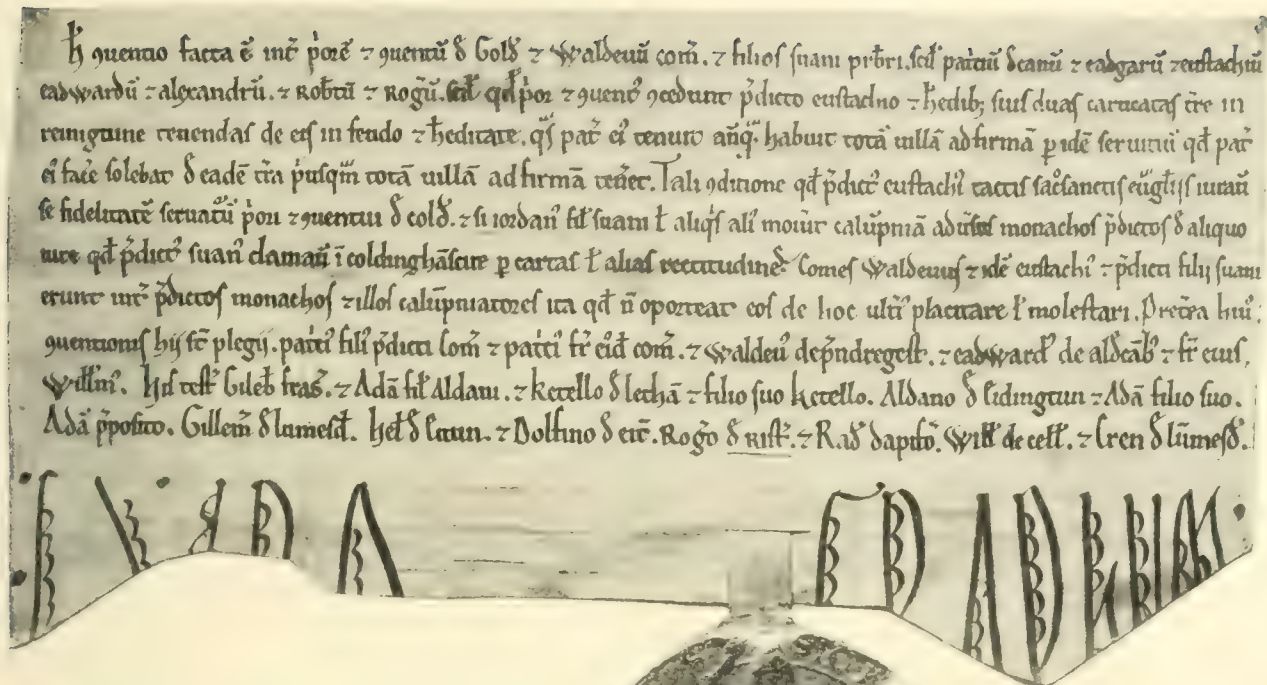 h̄ ꝯuentio facta ē int̄ p̓orē ⁊ ꝯuentū ẟ Golẟ ⁊ Waldeuū com̄. ⁊ filios suani prb̄ri. scił patⁱciū ẟcanū ⁊ eadgarū ⁊ eustachiū
eadwardū ⁊ alexandrū. ⁊ Rob̄tū ⁊ Rog̓ū. scił qđ p̓or ⁊ ꝯuentꝰ ꝯcedunt p̄dicto eustachio ⁊ h̄edibꝫ suis duas carucatas t̄re in
reinigtune tenendas de eis in feudo ⁊ h̄editate. qͣs pat̄ eiꝰ tenuit anqͣ habuit totā uillā ad firmā ꝑ idē seruitiū qđ pat̄
eiꝰ face̓ solebat ẟ eadē t̄ra p̓usqͣm totā uillā ad firmā ten̓et. Tali ꝯditione qđ p̄dictꝰ eustachiꝰ tactis sac̓sanctis euͣgl̄ijs iurau̓
se fidelitatē seruatuͬū p̓ori ⁊ ꝯuentui ẟ colẟ. ⁊ si iordanꝰ fił suani ł aliqⁱs aliꝰ mou̓it calūpniā adu̓sus monachos p̄dictos ẟ aliquo
iure qđ p̄dictꝰ suanꝰ clamau̓ ī coldinghāscire ꝑ cartas ł alias rectitudines. Comes Waldeuus ⁊ idē eustachiꝰ ⁊ p̄dicti filij suani
erunt int̄ p̄dictos monachos ⁊ illos calūpniatores ita qđ n̄ oporteat eos de hoc ult̓iꝰ placitare ł molestari. Pret̓ea huiꝰ
ꝯuentionis hij st̄ plegij. patⁱciꝰ filiꝰ p̄dicti Com̄ ⁊ patⁱciꝰ fr̄ eiđ com̄. ⁊ Waldeuꝰ de p̄ndregest. ⁊ eadwardꝰ de aldcāb̓ ⁊ fr̄ eius,
Will̄mꝰ. His test̓ Gileb̄ fras̓. ⁊ Adā fił Aldani. ⁊ Ketello ẟ lechā ⁊ filio suo Ketello. Aldano ẟ Eidingtun ⁊ Adā filio suo.
Adā p̄posito. Gillem̄ ẟ lumesđ. Hel̓ ẟ Ettun. ⁊ Dolfino ẟ eit̄. Rog̓o ẟ rist̓. ⁊ Rađ dapif̓o. Wiłł de cełł. ⁊ Cren ẟ lūmesđ.